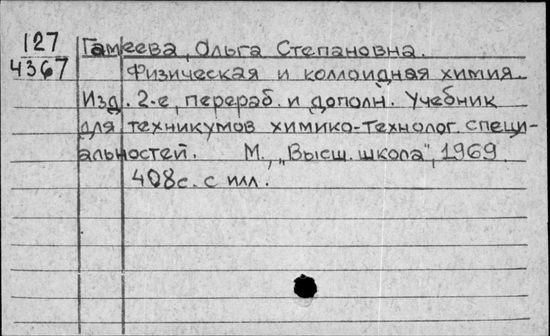 127
4367
Гамеева, Ольга Степановна.
Физическая и коллоидная химия.
Изд. 2-е, перераб. и дополн. Учебник
для техникумов химико-технолог. специ-
альностей. М., „Высш. школа", 1969.
408с. с илл.